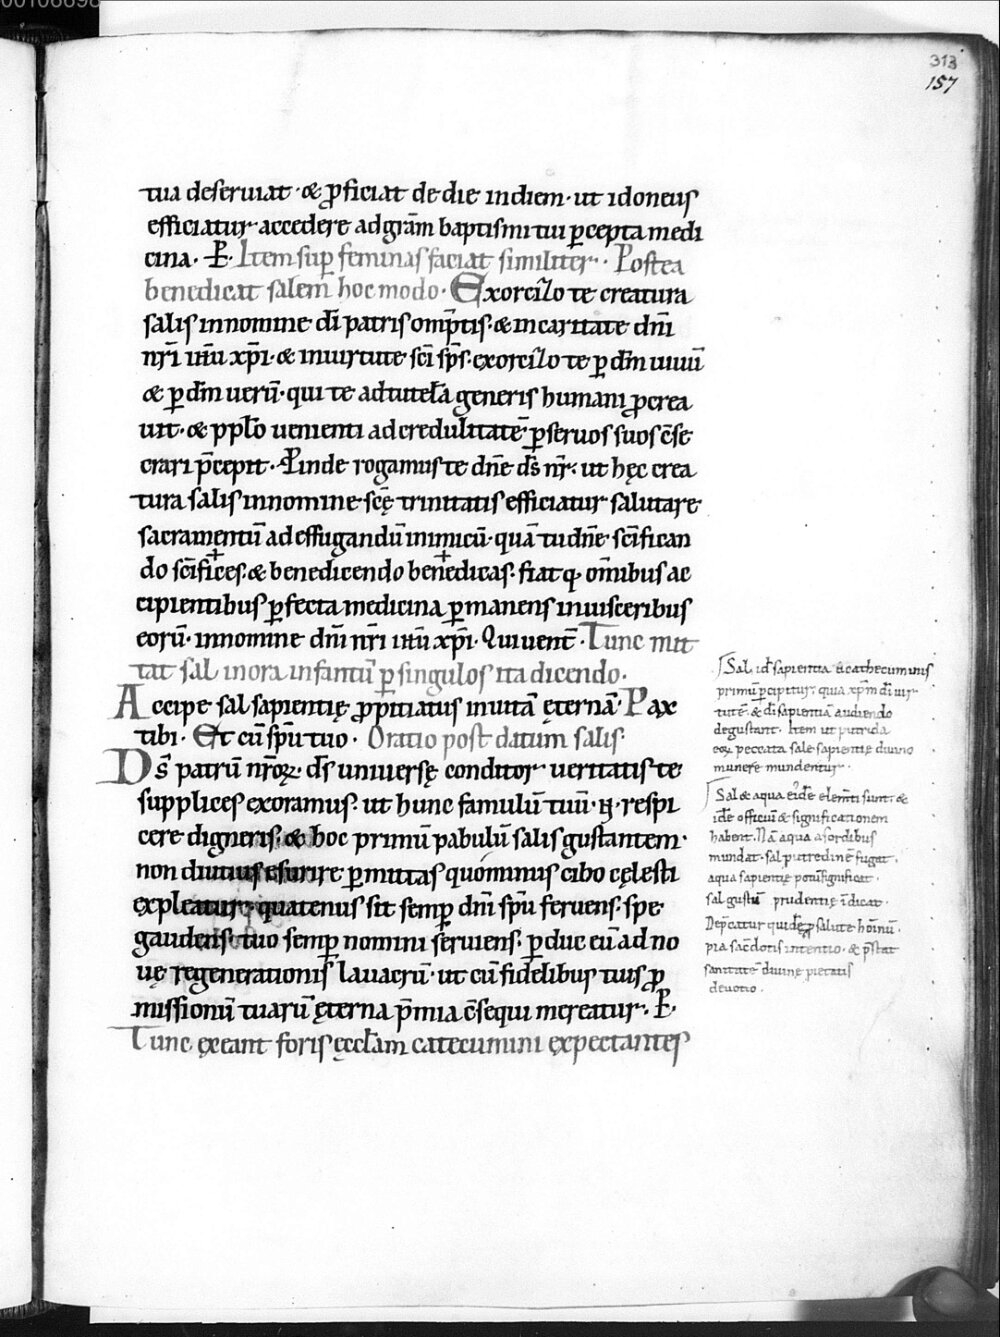 00106698
313
157
tua deseruiat · & ꝓficiat de die indiem · ut idoneus
efficiatur accedere ad grām baptismi tui ꝑcepta medi
cina · P̄. Item sup̄ feminas faciat similiter · Postea
benedicat salem hoc modo · Exorcizo te creatura
salis innomine dī patris omp̄tis · & in caritate dn̄i
nr̄i ih̄u xp̄i · & inuirtute sc̄i sp̄s · exorcizo te ꝑ dm̄ uiuū
& ꝑ dm̄ uerū · qui te ad tutelā generis humani ꝓcrea
uit · & pplo uenienti ad credulitatē ꝑ seruos suos c̄se
crari p̄cepit · Proinde rogamus te dn̄e ds̄ nr̄ · ut hęc crea
tura salis innomine scę̄ trinitatis efficiatur salutare
sacramentū ad effugandū inimicū · quā tu dn̄e sc̄ifican
do sc̄ifi+ces · & benedicendo bene+dicas · fiat q; om̄ibus ac
cipientibus ꝑfecta medicina ꝑmanens inuisceribus
eorū · innomine dn̄i nr̄i ih̄u xp̄i · Qui uent̄ · Tunc mit
tat sal inora infantū ꝑ singulos ita dicendo ·
Accipe sal sapientię ꝓpitiatus inuitā ęternā · Pax
tibi · Et cū sp̄u tuo · Oratio post datum salis ·
Ds̄ patrū nr̄oꝝ · ds̄ uniuersę conditor ueritatis te
supplices exoramus · ut hunc famulū tuū · N̄ · respi
cere digneris · & hoc primū pabulū salis gustantem ·
non diutius esurire ꝑmittas quominus cibo cęlesti
expleatur · quatenus sit semꝑ dn̄i sp̄u feruens · spe
gaudens · tuo semꝑ nomini seruiens · ꝑduc eū ad no
uę regenerationis lauacrū · ut cū fidelibus tuis ꝓ
missionū tuarū ęterna p̄mia c̄sequi mereatur · P̄ ·
Tunc exeant foris ęccl̄am catecumini expectantes
Sal id̄ sapientia a cathecuminis
primū ꝑcipitur · quia xp̄m dī uir
tutē & dī sapientiā audiendo
degustant · Item ut putrida
eoꝝ peccata sale sapientię diuino
munere mundentur ·
Sal & aqua eidē elem̄ti sunt · &
idē officiū & significationem
habent · Nā aqua a sordibus
mundat · sal putredinē fugat ·
aqua sapientię potū significat ·
sal gustū prudentię īdicat ·
Dep̄catur quidē ꝓ salute hoīnū ·
pia sac̄dotis intentio · & p̄stat
sanitatē diuinę pietatis
deuotio ·